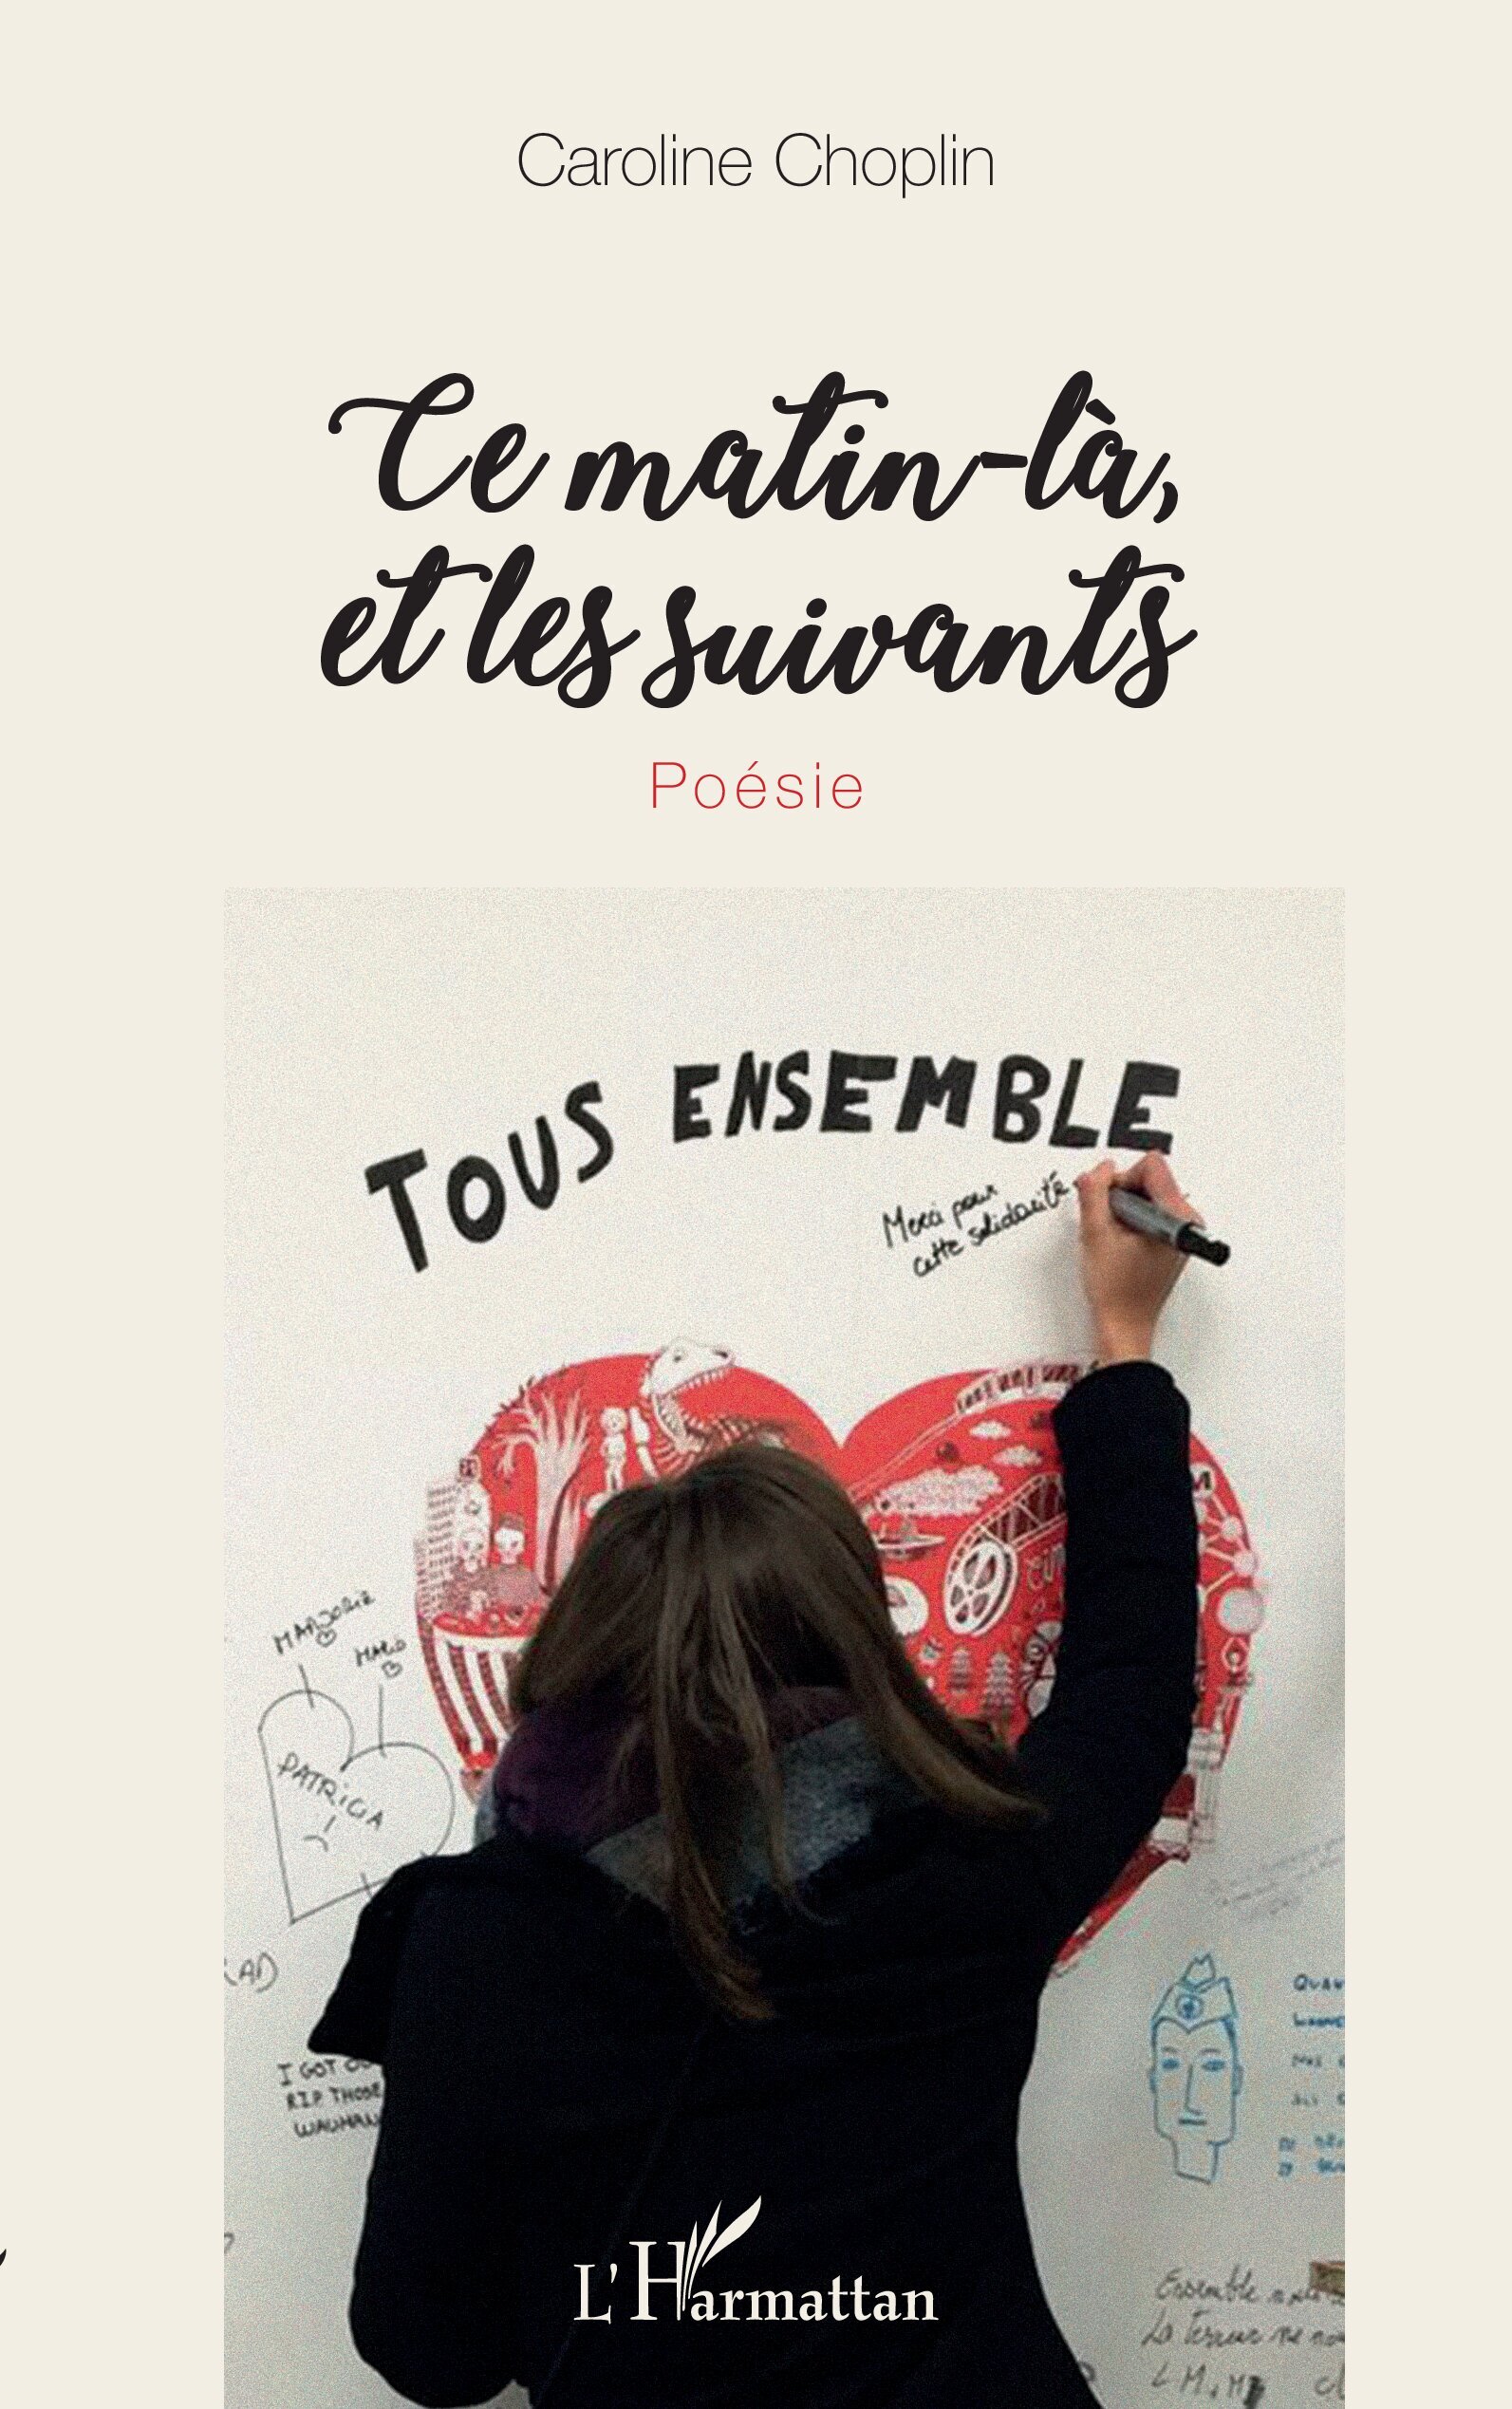 Caroline Choplin
Ce matin-là,
et les suivants
Poésie
TOUS ENSEMBLE
Merci pour
cette solidarité
MARJORIE
MARIO
PATRICIA
I GOT
RIP THOSE
Ensemble
La terreur ne
L'Harmattan